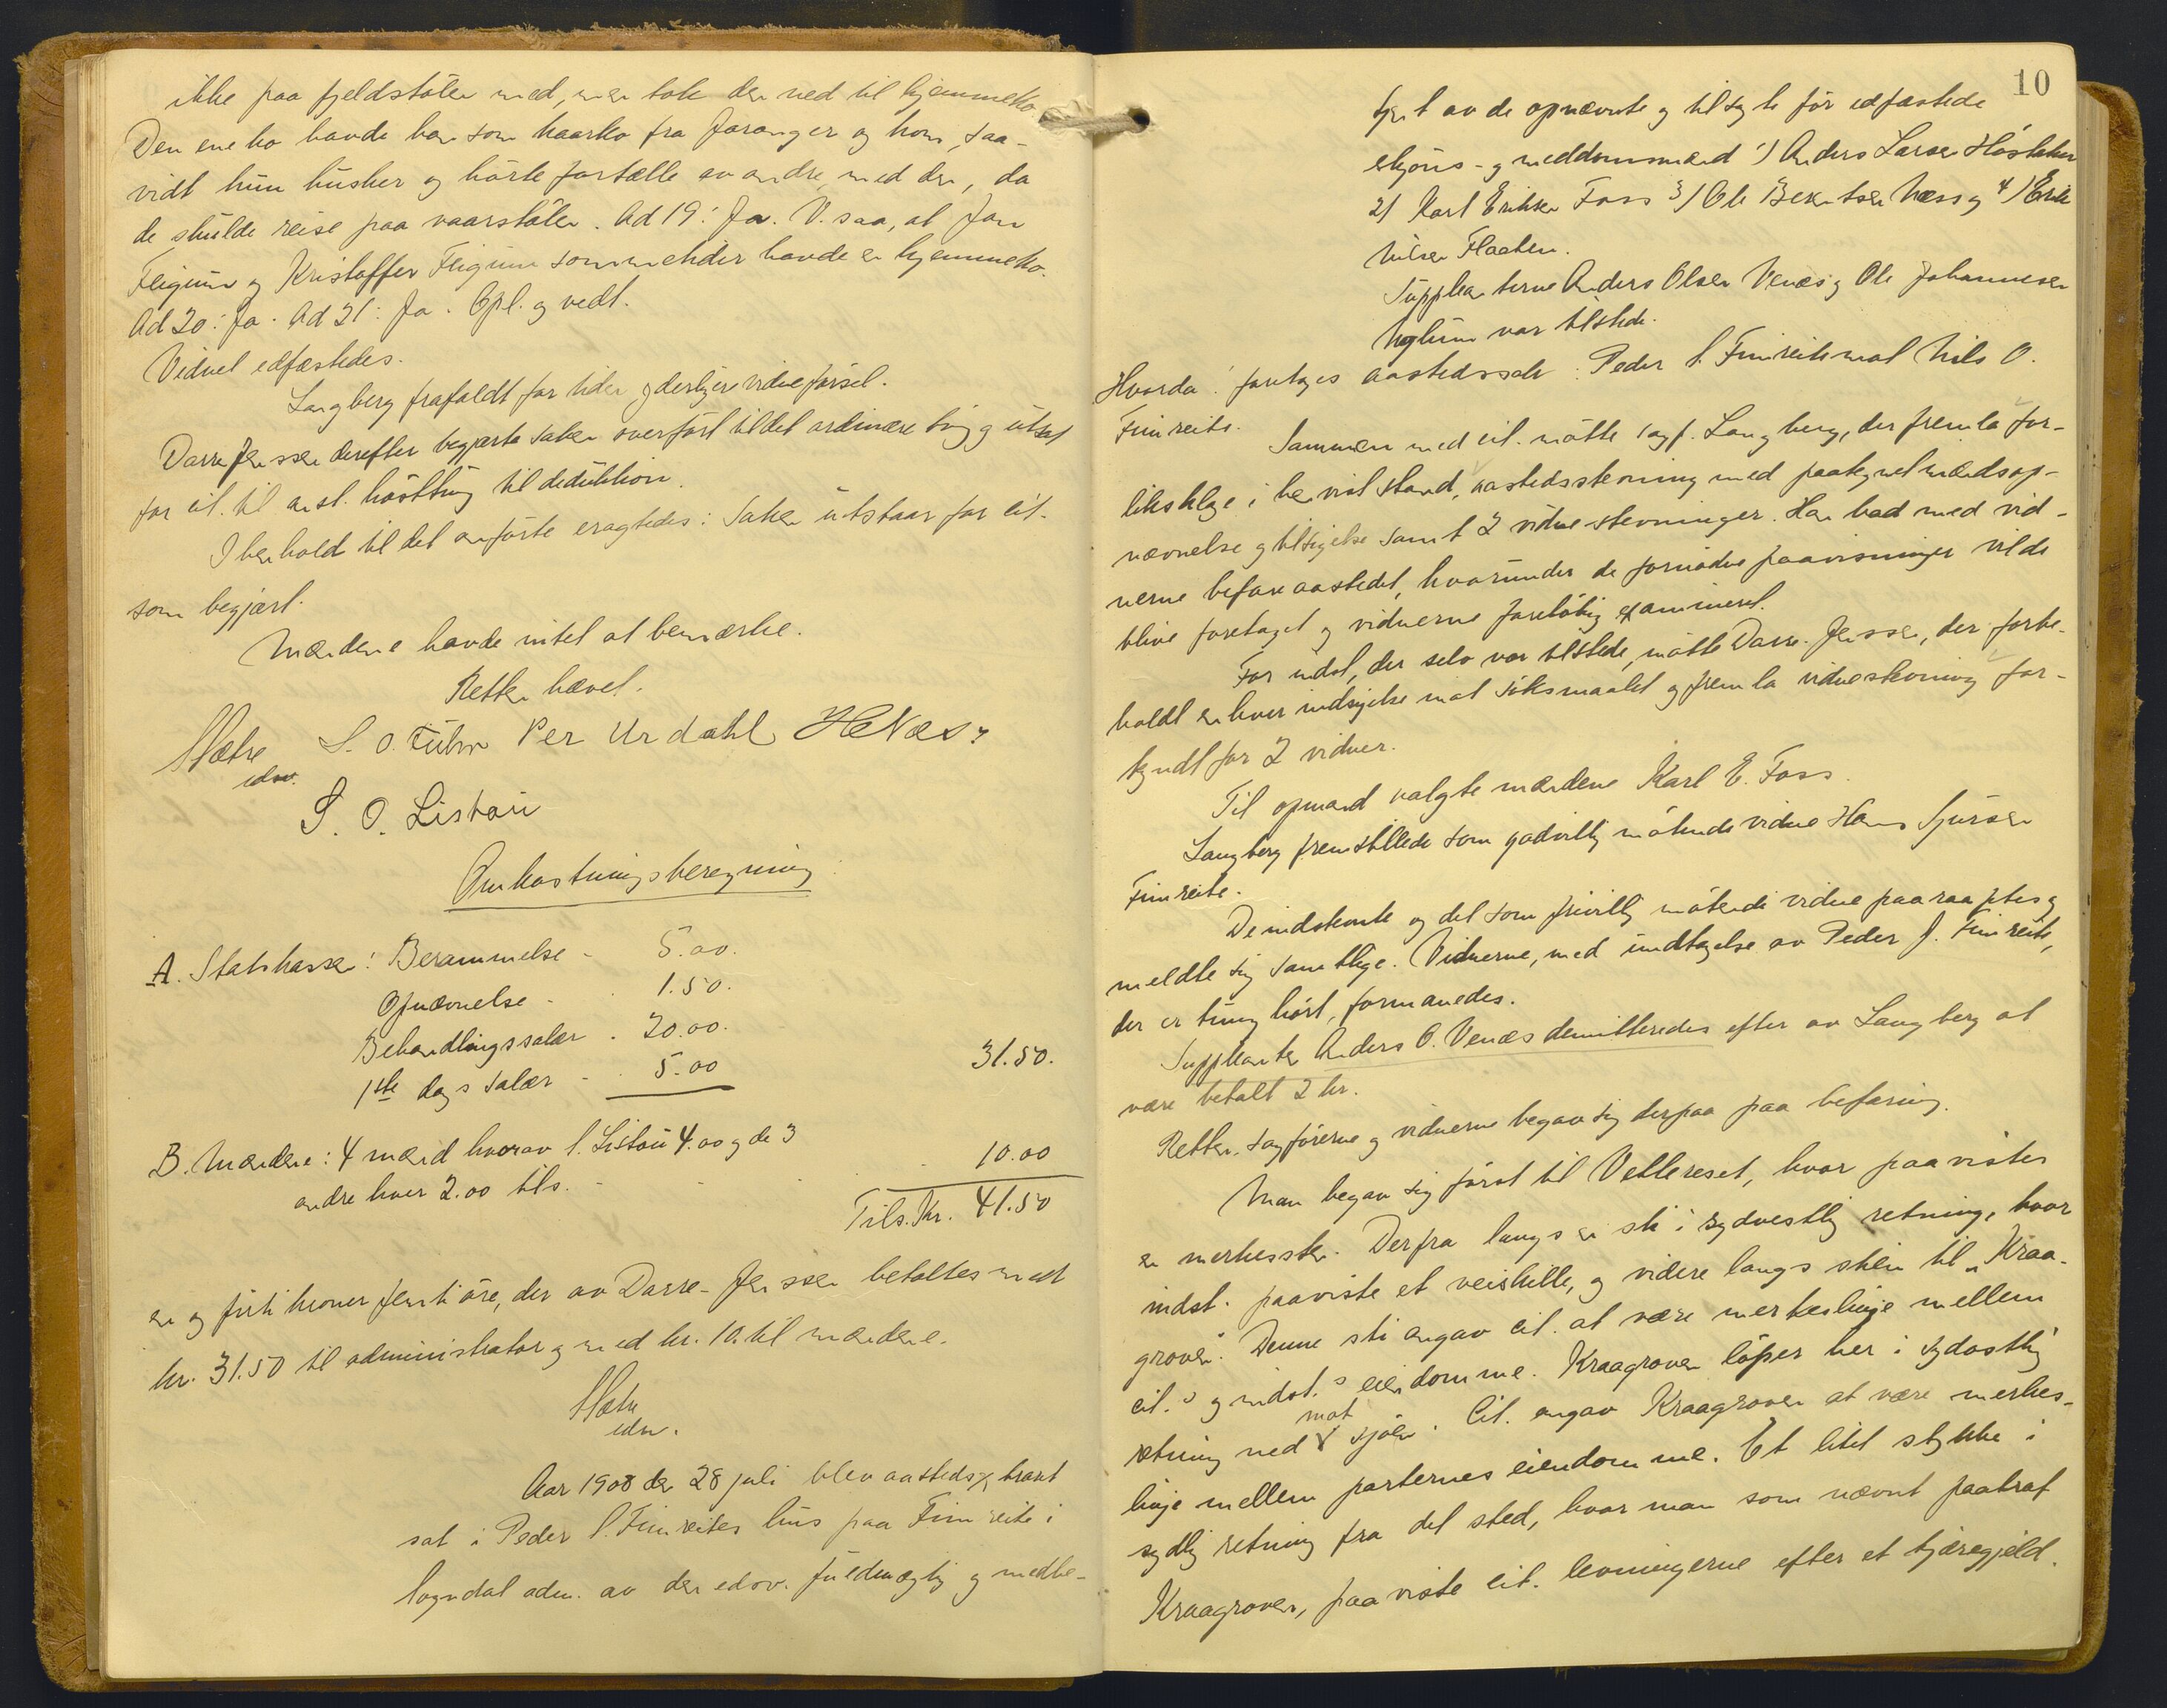 ikke paa fjeldstölen med, men tok den ned til hjemmeko.
Den ene ko havde han som haarko fra Jaranger og hons, saa-
vidt hun husker og hörte fortælle av andre, med den, da
de skulde reise paa vaarstölen. Ad 19: Ja. V. saa, at Jon
Feigum og Kristoffer Feigum sommetider havde en hjemmeko.
Ad 20: Ja. Ad 21: Ja. Opl. og vedt.
Vidnet edfæstedes.
Langberg frafaldt for tiden yderligere vidneförsel.
Darre Jenssen derefter begjærte saken overfört til det ordinære ting og utsat
for cit. til anst. höstting til deduktion.
I henhold til det anförte eragtedes: Saken utstaar for cit.
som begjært.
Mændene havde intet at bemærke.
Retten hævet.
Sætre L. O. Tuhn Per Urdahl H Næss
edsv.
S. O. Listou
Omkostningsberegning
A. Statskassen: Berammelse - 5.00.
Opnævnelse - 1.50.
Behandlingssalær . 20.00.
1ste dags salær - 5.00 31.50.
B. Mændene: 4 mænd hvorav l. Listou 4.00 og de 3
andre hver 2.00 tils. - - 10.00
Tils. Kr. 41.50
en og firti kroner femti öre, der av Darre-Jenssen betaltes med
kr. 31.50 til administrator og med kr. 10. til mændene.
Sætre
edsv.
Aar 1908 den 28 juli blev aastedsextraret
sat i Peder P. Fimreites hus paa Fimreite i
Sogndal adm. av den edsv. fuldmægtig og medbe-
10
tjent av de opnævnte og tilsagte för edfæstede
skjöns- og meddomsmænd 1) Anders Larsen Slästehen
2) Karl Eriksen Foss 3) Ole Berntsen Næss og 4) Erik
Nilsen Flaaten.
Supplianterne Anders Olsen Venæs og Ole Johannesen
Uglum var tilstede.
Hvorda: foretoges aastedssak: Peder P. Fimreite mot Nils O.
Fimreite.
Sammen med cit. mötte sagf. Langberg, der fremla for-
liksklage i henvist stand, aastedsstevning med paategnet mændsop-
nævnelse og tilsigelse samt 2 vidne-stevninger. Han bad med vid-
nerne befare aastedet, hvorunder de fornödne paavisninger vilde
blive foretaget og vidnerne foreløbig examineret.
For indst., der selv var tilstede, mötte Darre-Jenssen, der forbe-
holdt enhver indsigelse mot söksmaalet og fremla vidnestevning for-
kyndt for 2 vidner.
Til opmand valgte mændene Karl E. Foss.
Langberg fremstillede som godvillig mötende vidne Hans Sjursen
Fimreite.
De indstevnte og det som frivillig mötende vidne paaraaptes og
meldte sig samtlige. Vidnerne, med undtagelse av Peder J. Fimreite,
der er tunghört, formanedes.
Suppleanten Anders O. Venæs demitteredes efter av Langberg at
være betalt 2 kr.
Retten, sagförerne og vidnerne begav sig derpaa paa befaring.
Man begav sig först til Vetlereset, hvor paavistes
en merkessten. Derfra langs en sti i sydvestlig retning, hvor
indst. paaviste et veiskille, og videre langs stien til "Kraa-
groven". Denne sti angav cit. at være merkeslinje mellem
cit.s og indst.s eiendomme. Kraagroven löper her i sydöstlig
retning ned mot sjöen. Cit. angav Kraagroven at være merkes-
linje mellem parternes eiendomme. Et litet stykke i
sydlig retning fra det sted, hvor man som nævnt paatraf
Kraagroven, paaviste cit. levningerne efter et tjæregjeld.